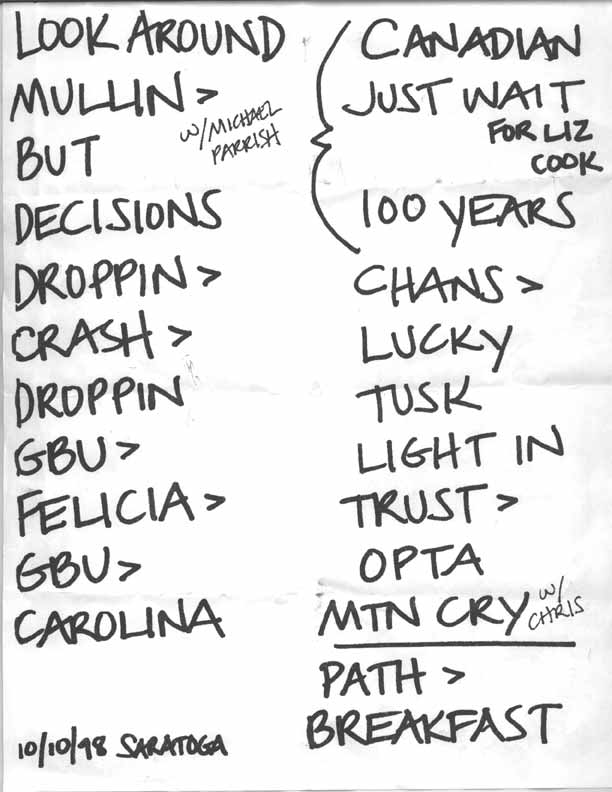 LOOK AROUND
MULLIN >
W/MICHAEL
PARRISH
BUT
DECISIONS
DROPPIN >
CRASH >
DROPPIN
GBU >
FELICIA >
GBU >
CAROLINA
10/10/98 SARATOGA
CANADIAN
JUST WAIT
FOR LIZ
COOK
100 YEARS
CHANS >
LUCKY
TUSK
LIGHT IN
TRUST >
OPTA
MTN CRY
W/
CHRIS
PATH >
BREAKFAST